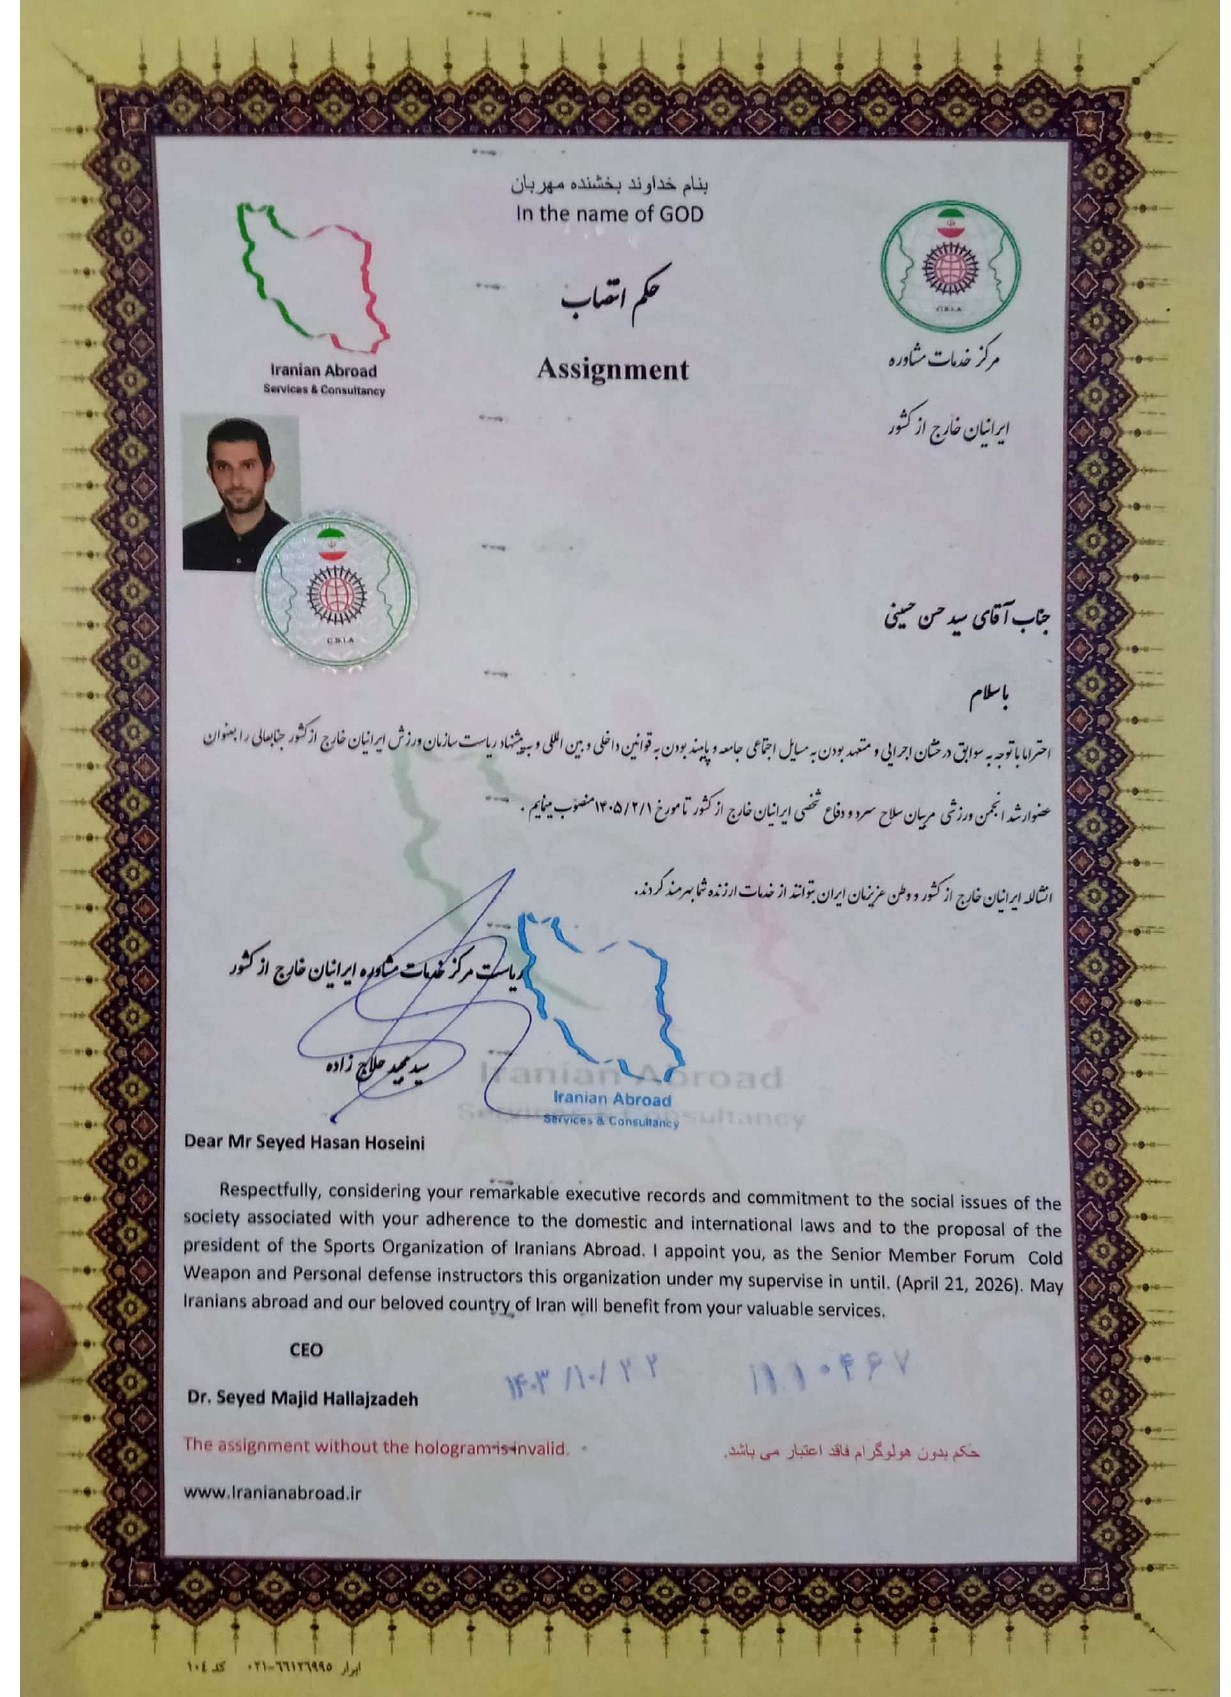 بنام خداوند بخشنده مهربان
In the name of GOD
حکم انتصاب
Assignment
Iranian Abroad
Services & Consultancy
C.S.I.A
مرکز خدمات مشاوره
ایرانیان خارج از کشور
C.S.I.A
جناب آقای سید حسن حسینی
باسلام
احتراما با توجه به سوابق درخشان اجرایی و متعهد بودن به مسایل اجتماعی جامعه و پایبند بودن به قوانین داخلی و بین المللی و به پیشنهاد ریاست سازمان ورزش ایرانیان خارج از کشور جنابعالی را بعنوان
عضو ارشد انجمن ورزشی مربیان سلاح سرد و دفاع شخصی ایرانیان خارج از کشور تا مورخ ۱۴۰۵/۲/۱ منصوب مینمایم .
انشالله ایرانیان خارج از کشور و وطن عزیزمان ایران بتوانند از خدمات ارزنده شما بهرمند گردند.
ریاست مرکز خدمات مشاوره ایرانیان خارج از کشور
سید مجید حلاج زاده
Iranian Abroad
Services & Consultancy
Iranian Abroad
Services & Consultancy
Dear Mr Seyed Hasan Hoseini
Respectfully, considering your remarkable executive records and commitment to the social issues of the
society associated with your adherence to the domestic and international laws and to the proposal of the
president of the Sports Organization of Iranians Abroad. I appoint you, as the Senior Member Forum Cold
Weapon and Personal defense instructors this organization under my supervise in until. (April 21, 2026). May
Iranians abroad and our beloved country of Iran will benefit from your valuable services.
CEO
۱۴۰۳/۱۰/۲۲
۱۱۱۰۴۶۷
Dr. Seyed Majid Hallajzadeh
The assignment without the hologram is invalid.
حکم بدون هولوگرام فاقد اعتبار می باشد.
www.Iranianabroad.ir
ابرار ۶۶۱۲۶۹۹۵-۰۲۱ کد ۱۰۴